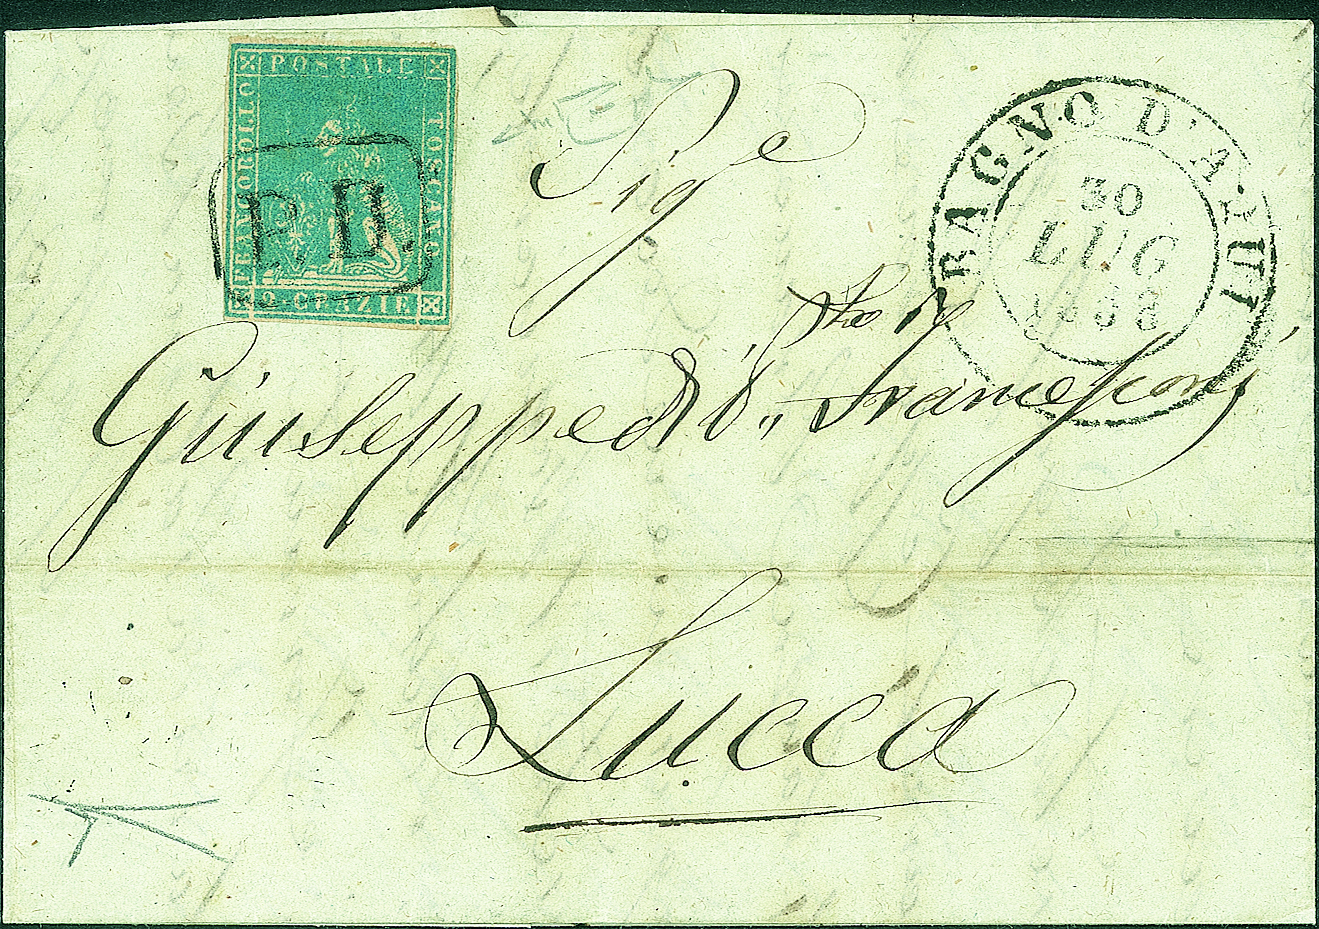 POSTALE
FRANCOBOLLO
TOSCANO
2 CRAZIE
P.D.
BAGNO D'A-QUI
30
LUG
1858
Sig.e
Giuseppe di
Francesconi
Lucca